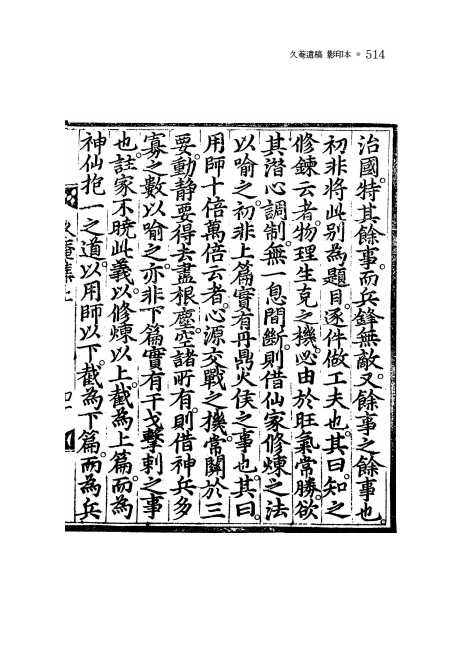 久菴遺稿 影印本 ● 514
治國。特其餘事。而兵鋒無敵。又餘事之餘事也。
初非將此别為題目。逐件做工夫也。其曰。知之
修鍊云者。物理生克之機。必由於旺氣常勝。欲
其潜心調制。無一息間斷。則借仙家修煉之法
以喻之。初非上篇實有丹鼎火侯之事也。其曰。
用師十倍萬倍云者。心源交戰之機。常關於三
要。動静要得去盡根塵。空諸所有。則借神兵多
寡之數以喻之。亦非下篇實有干戈擊刺之事
也。註家不曉此義。以修煉以上。截為上篇。而為
神仙抱一之道。以用師以下。截為下篇。而為兵